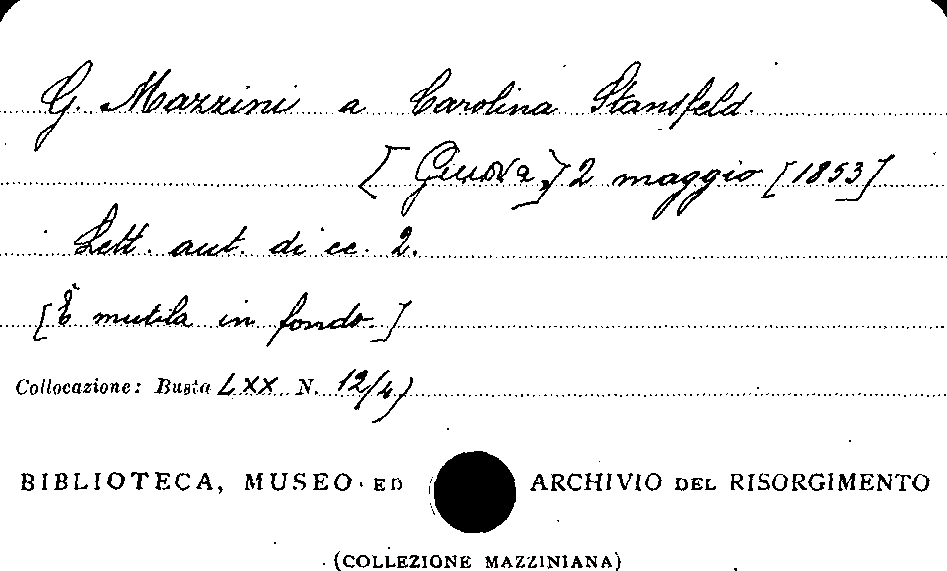 G. Mazzini a Carolina Stansfeld.
[Genova,] 2 maggio [1853]
Lett. aut. di cc. 2.
[È mutila in fondo.]
Collocazione: Busta LXX N. 12/4)
BIBLIOTECA, MUSEO ED ARCHIVIO DEL RISORGIMENTO
(COLLEZIONE MAZZINIANA)